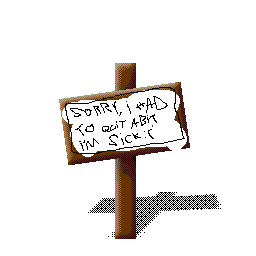 SORRY, i HAD
TO QUiT A BiT
i'M SiCK :(